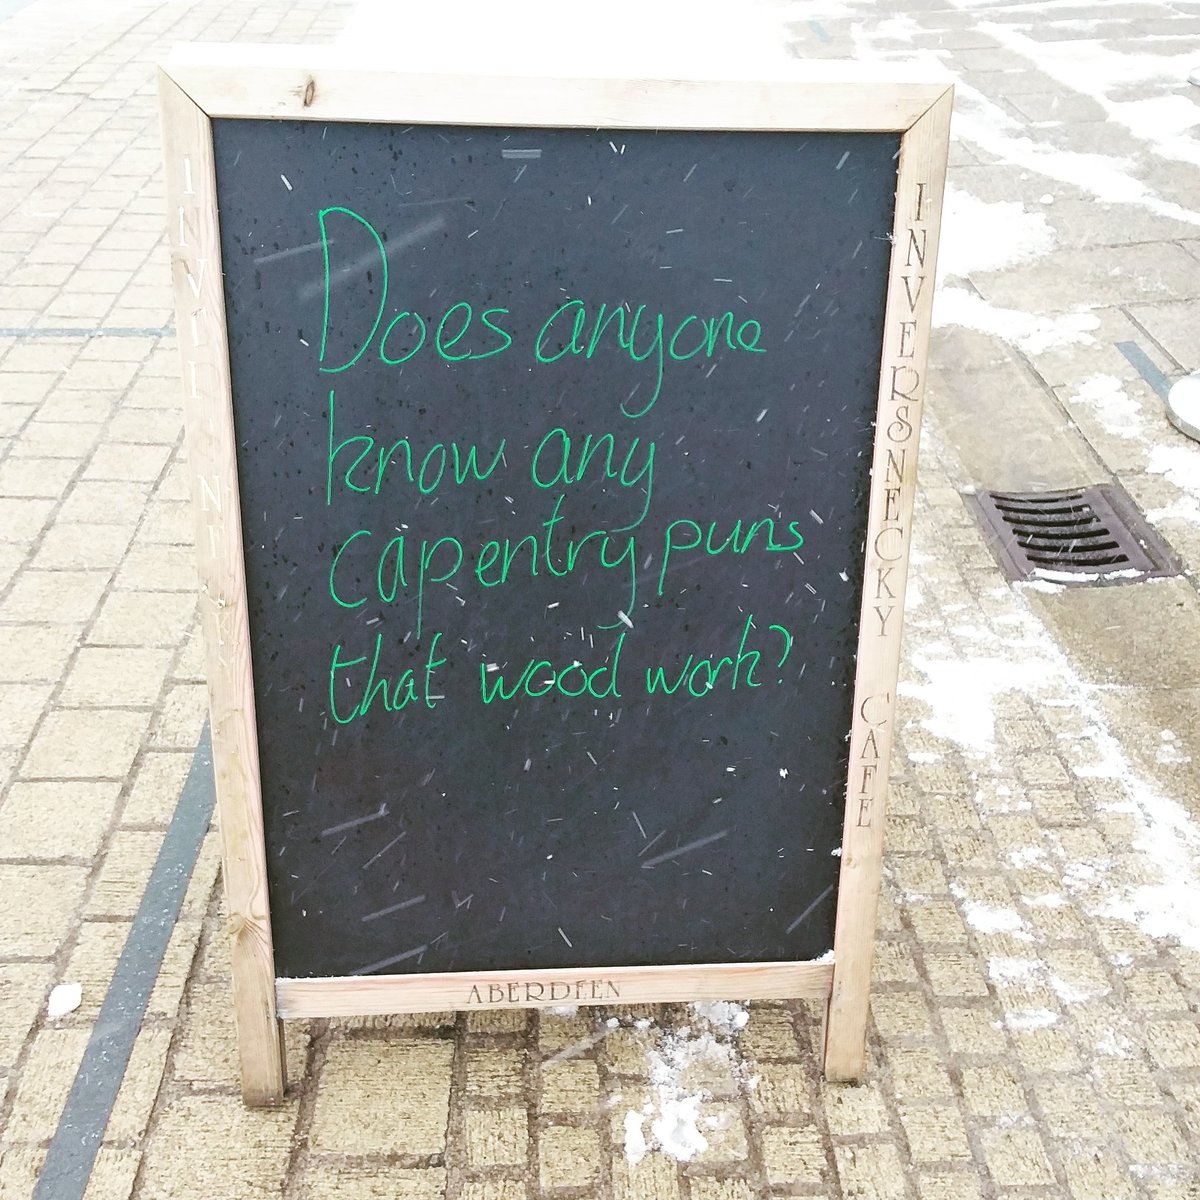 Does anyone
know any
capentry puns
that wood work?
INVERSNECKY CAFE
ABERDEEN